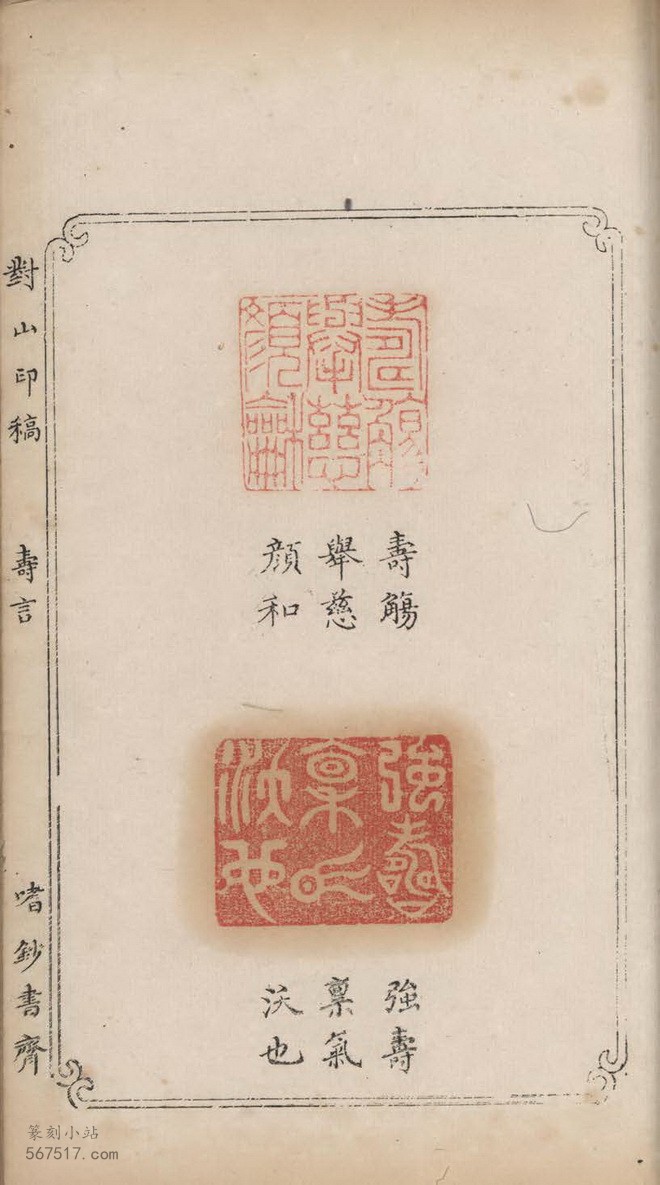 壽觴
舉慈
顔和
強壽
禀氣
沃也
對山印稿 壽言 嗜鈔書齊
篆刻小站
567517.com